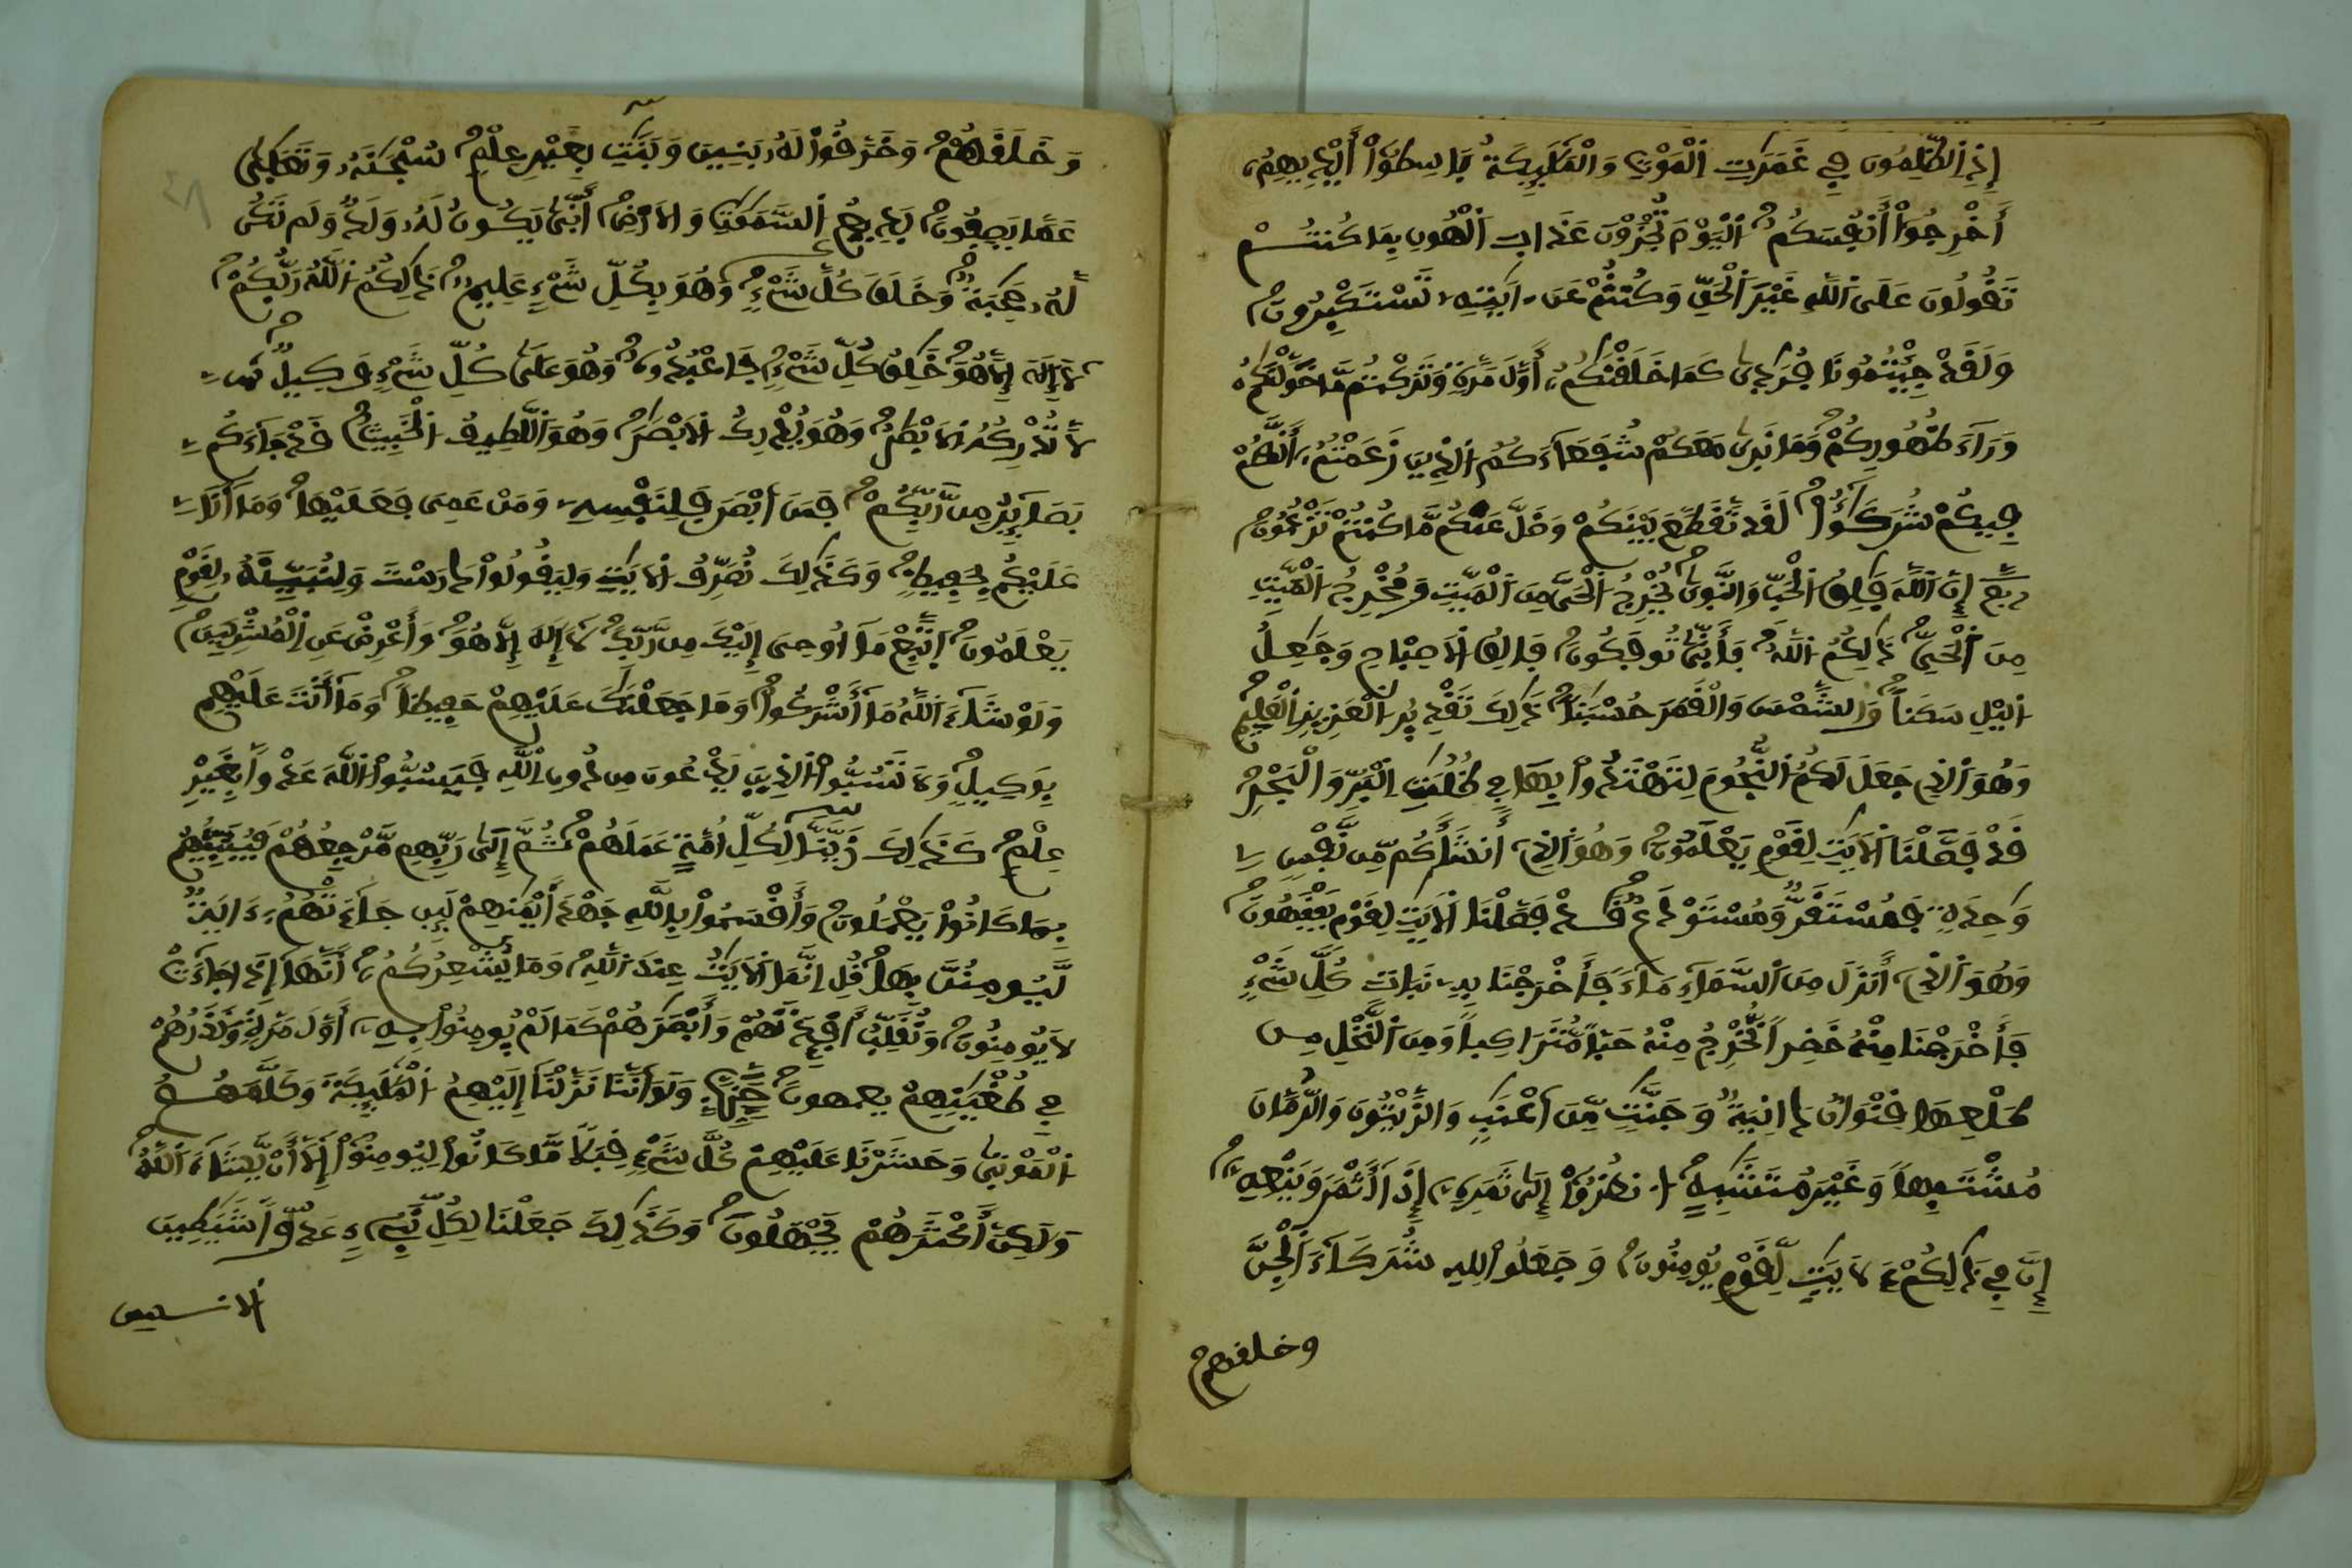 إِذِ اِ۬لظَّٰلِمُونَ فِے غَمَرَٰتِ اِ۬لْمَوْتِ وَالْمَلَٰٓئِكَةُ بَاسِطُوٓاْ أَيْدِيهِمُۥٓ
أَخْرِجُوٓاْ أَنفُسَكُمُ اُ۬لْيَوْمَ تُجْزَوْنَ عَذَابَ اَ۬لْهُونِ بِمَا كُنتُمْ
تَقُولُونَ عَلَى اَ۬للَّهِ غَيْرَ اَ۬لْحَقِّ وَكُنتُمْ عَنَ ايَٰتِهِۦ تَسْتَكْبِرُونَ
وَلَقَدْ جِئْتُمُونَا فُرَٰدِىٰ كَمَا خَلَقْنَٰكُمُۥٓ أَوَّلَ مَرَّةٖ وَتَرَكْتُم مَّا خَوَّلْنَٰكُمْ
وَرَآءَ ظُهُورِكُمْ وَمَا نَرِىٰ مَعَكُمْ شُفَعَآءَكُمُ اُ۬لذِينَ زَعَمْتُمُۥٓ أَنَّهُمْ
فِيكُمْ شُرَكَٰٓؤُاْ لَقَد تَّقَطَّعَ بَيْنَكُمْ وَضَلَّ عَنكُم مَّا كُنتُمْ تَزْعُمُونَ
ربع إِنَّ اَ۬للَّهَ فَٰلِقُ اُ۬لْحَبِّ وَالنَّوىٰ يُخْرِجُ اُ۬لْحَىَّ مِنَ اَ۬لْمَيِّتِ وَمُخْرِجُ اُ۬لْمَيِّتِ
مِنَ اَ۬لْحَيِّ ذَٰلِكُمُ اُ۬للَّهُ فَأَنّ۪ىٰ تُوفَكُونَ فَالِقُ اُ۬لِاصْبَاحِ وَجَٰعِلُ
اُ۬ليْلِ سَكَناٗ وَالشَّمْسَ وَالْقَمَرَ حُسْبَٰناٗ ذَٰلِكَ تَقْدِيرُ اُ۬لْعَزِيزِ اِ۬لْعَلِيمِ
وَهُوَ اَ۬لذِے جَعَلَ لَكُمُ اُ۬لنُّجُومَ لِتَهْتَدُواْ بِهَا فِے ظُلُمَٰتِ اِ۬لْبَرِّ وَالْبَحْرِ
قَدْ فَصَّلْنَا اَ۬لَايَٰتِ لِقَوْمٖ يَعْلَمُونَ وَهُوَ اَ۬لذِےٓ أَنشَأَكُم مِّن نَّفْسٖ
وَٰحِدَةٖ فَمُسْتَقَرّٞ وَمُسْتَوْدَعٞ قَدْ فَصَّلْنَا اَ۬لَايَٰتِ لِقَوْمٖ يَفْقَهُونَ
وَهُوَ اَ۬لذِےٓ أَنزَلَ مِنَ اَ۬لسَّمَآءِ مَآءٗ فَأَخْرَجْنَا بِهِۦ نَبَاتَ كُلِّ شَےْءٖ
فَأَخْرَجْنَا مِنْهُ خَضِراٗ نُّخْرِجُ مِنْهُ حَبّاٗ مُّتَرَاكِباٗ وَمِنَ اَ۬لنَّخْلِ مِن
طَلْعِهَا قِنْوَانٞ دَانِيَةٞ وَجَنَّٰتٖ مِّنَ اَعْنَٰبٖ وَالزَّيْتُونَ وَالرُّمَّانَ
مُشْتَبِهاٗ وَغَيْرَ مُتَشَٰبِهٍ اُ۟نظُرُوٓاْ إِلَىٰ ثَمَرِهِۦٓ إِذَآ أَثْمَرَ وَيَنْعِهِۦٓ
إِنَّ فِے ذَٰلِكُمْ ءَلَايَٰتٖ لِّقَوْمٖ يُومِنُونَ وَجَعَلُواْ لِلهِ شُرَكَآءَ اَ۬لْجِنَّ
وخلقهم
وَخَلَقَهُمْ وَخَرَّقُواْ لَهُۥ بَنِينَ وَبَنَٰتِۢ بِغَيْرِ عِلْمٖ سُبْحَٰنَهُۥ وَتَعَٰلَىٰ
عَمَّا يَصِفُونَ بَدِيعُ اُ۬لسَّمَٰوَٰتِ وَالَارْضِ أَنّ۪ىٰ يَكُونُ لَهُۥ وَلَدٞ وَلَمْ تَكُن
لَّهُۥ صَٰحِبَةٞ وَخَلَقَ كُلَّ شَےْءٖ وَهُوَ بِكُلِّ شَےْءٍ عَلِيمٞ ذَٰلِكُمُ اُ۬للَّهُ رَبُّكُمْ
لَآ إِلَٰهَ إِلَّا هُوَ خَٰلِقُ كُلِّ شَےْءٖ فَاعْبُدُوهُ وَهُوَ عَلَىٰ كُلِّ شَےْءٖ وَكِيلٞ
لَّا تُدْرِكُهُ اُ۬لَابْصَٰرُ وَهُوَ يُدْرِكُ اُ۬لَابْصَٰرَ وَهُوَ اَ۬للَّطِيفُ اُ۬لْخَبِيرُ قَدْ جَآءَكُم
بَصَآئِرُ مِن رَّبِّكُمْ فَمَنَ اَبْصَرَ فَلِنَفْسِهِۦ وَمَنْ عَمِىَ فَعَلَيْهَا وَمَآ أَنَا
عَلَيْكُم بِحَفِيظٖ وَكَذَٰلِكَ نُصَرِّفُ اُ۬لَايَٰتِ وَلِيَقُولُواْ دَرَسْتَ وَلِنُبَيِّنَهُۥ لِقَوْمٖ
يَعْلَمُونَ اَ۪تَّبِعْ مَآ أُوحِىَ إِلَيْكَ مِن رَّبِّكَ لَآ إِلَٰهَ إِلَّا هُوَ وَأَعْرِضْ عَنِ اِ۬لْمُشْرِكِينَ
وَلَوْ شَآءَ اَ۬للَّهُ مَآ أَشْرَكُواْ وَمَا جَعَلْنَٰكَ عَلَيْهِمْ حَفِيظاٗ وَمَآ أَنتَ عَلَيْهِم
بِوَكِيلٖ وَلَا تَسُبُّواْ اُ۬لذِينَ يَدْعُونَ مِن دُونِ اِ۬للَّهِ فَيَسُبُّواْ اُ۬للَّهَ عَدْواَۢ بِغَيْرِ
عِلْمٖ كَذَٰلِكَ زَيَّنَّا لِكُلِّ أُمَّةٍ عَمَلَهُمْ ثُمَّ إِلَىٰ رَبِّهِم مَّرْجِعُهُمْ فَيُنَبِّئُهُم
بِمَا كَانُواْ يَعْمَلُونَ وَأَقْسَمُواْ بِاللَّهِ جَهْدَ أَيْمَٰنِهِمْ لَئِن جَآءَتْهُمُۥٓ ءَايَةٞ
لَّيُومِنُنَّ بِهَا قُلِ اِنَّمَا اَ۬لَايَٰتُ عِندَ اَ۬للَّهِ وَمَا يُشْعِرُكُمُۥٓ أَنَّهَآ إِذَا جَآءَتْ
لَا يُومِنُونَ وَنُقَلِّبُ أَفْـِٕدَتَهُمْ وَأَبْصَٰرَهُمْ كَمَا لَمْ يُومِنُواْ بِهِۦٓ أَوَّلَ مَرَّةٖ وَنَذَرُهُمْ
فِے طُغْيَٰنِهِمْ يَعْمَهُونَ حزب وَلَوَ اَنَّنَا نَزَّلْنَآ إِلَيْهِمُ اُ۬لْمَلَٰٓئِكَةَ وَكَلَّمَهُمُ
اُ۬لْمَوْتىٰ وَحَشَرْنَا عَلَيْهِمْ كُلَّ شَےْءٖ قِبَلاٗ مَّا كَانُواْ لِيُومِنُوٓاْ إِلَّآ أَنْ يَّشَآءَ اَ۬للَّهُ
وَلَٰكِنَّ أَكْثَرَهُمْ يَجْهَلُونَ وَكَذَٰلِكَ جَعَلْنَا لِكُلِّ نَبِےٓءٍ عَدُوّاٗ شَيَٰطِينَ
الانس